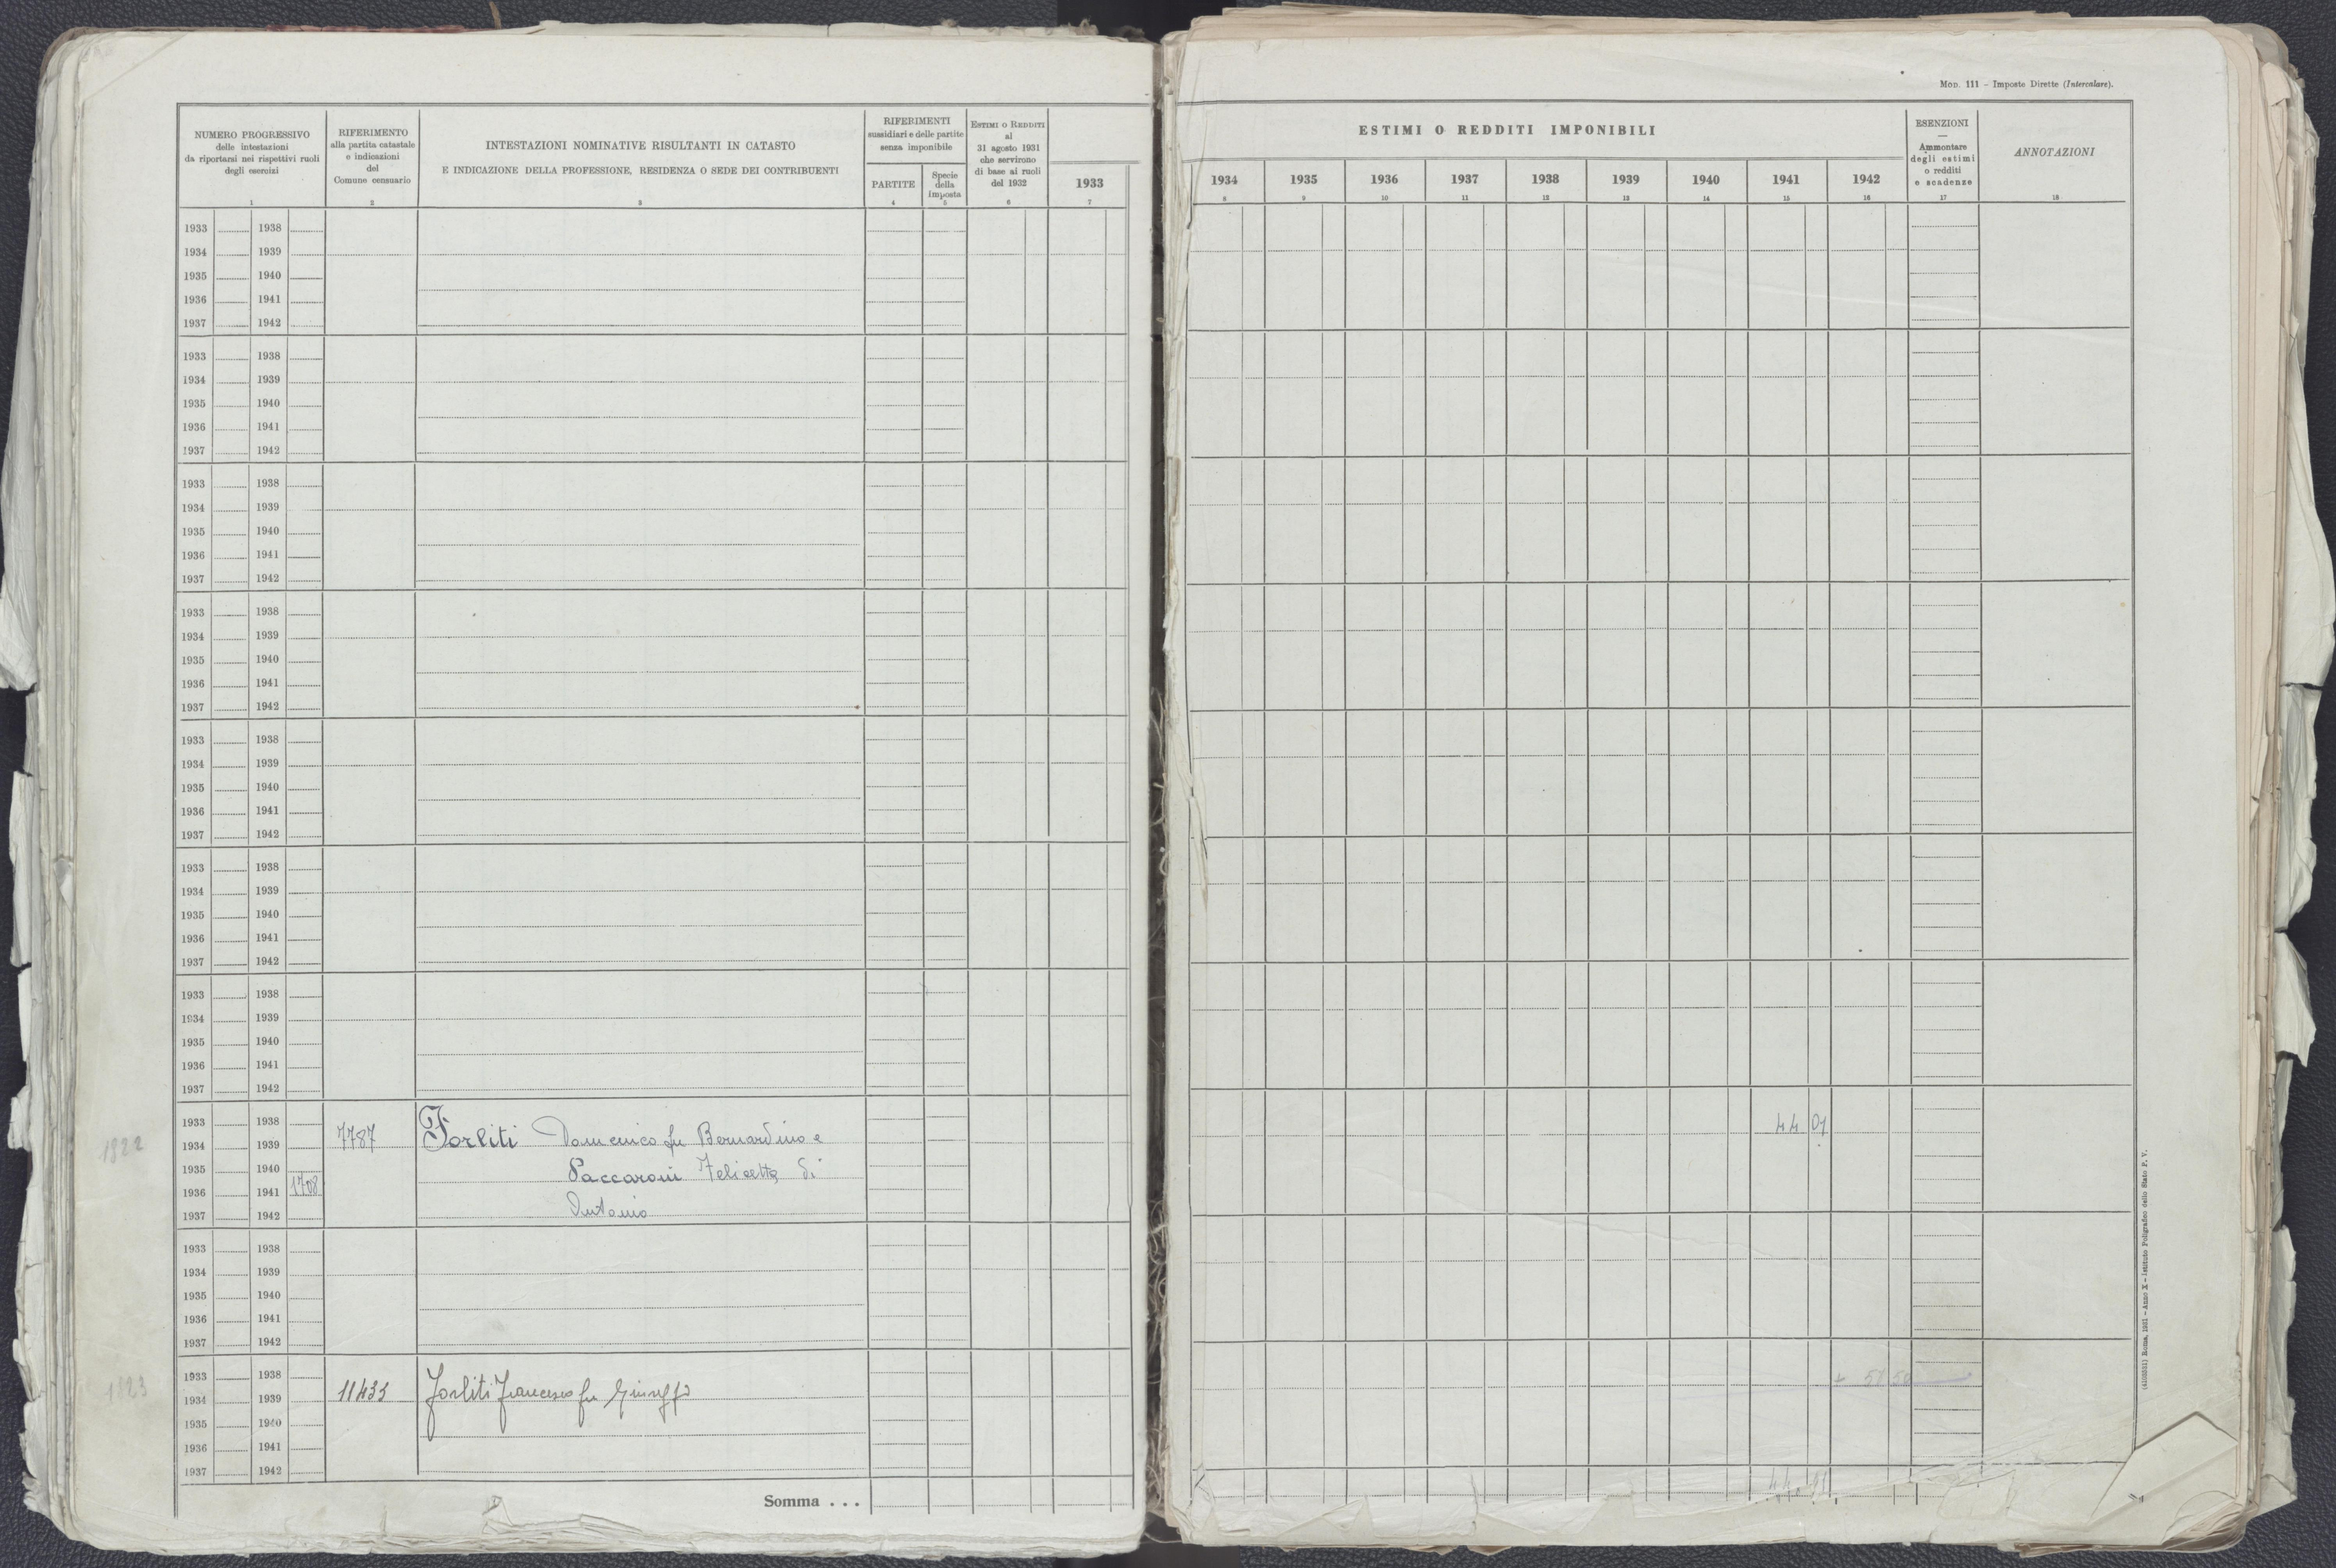 Mod. 111 – Imposte Dirette (Intercalare).
NUMERO PROGRESSIVO
delle intestazioni
da riportarsi nei rispettivi ruoli
degli esercizi
1
RIFERIMENTO
alla partita catastale
e indicazioni
del
Comune censuario
2
INTESTAZIONI NOMINATIVE RISULTANTI IN CATASTO
E INDICAZIONE DELLA PROFESSIONE, RESIDENZA O SEDE DEI CONTRIBUENTI
3
RIFERIMENTI
sussidiari e delle partite
senza imponibile
PARTITE
4
Specie
della
imposta
5
Estimi o Redditi
al
31 agosto 1931
che servirono
di base ai ruoli
del 1932
6
1933
7
ESTIMI O REDDITI IMPONIBILI
1934 1935 1936 1937 1938 1939 1940 1941 1942
8 9 10 11 12 13 14 15 16
ESENZIONI
—
Ammontare
degli estimi
o redditi
e scadenze
17
ANNOTAZIONI
18
1933 1938
1934 1939
1935 1940
1936 1941
1937 1942
1933 1938
1934 1939
1935 1940
1936 1941
1937 1942
1933 1938
1934 1939
1935 1940
1936 1941
1937 1942
1933 1938
1934 1939
1935 1940
1936 1941
1937 1942
1933 1938
1934 1939
1935 1940
1936 1941
1937 1942
1933 1938
1934 1939
1935 1940
1936 1941
1937 1942
1933 1938
1934 1939
1935 1940
1936 1941
1937 1942
1933 1938 44 01
1822 1934 1939 7787 Forliti Domenico fu Bernardino e
1935 1940 Paccaroni Felicetta di
1936 1941 1708
1937 1942 Antonio
1933 1938
1934 1939
1935 1940
1936 1941
1937 1942
1933 1938
1823 1934 1939 11433 Forliti Francesco fu Giuseppe
1935 1940
1936 1941
1937 1942
Somma . . .
(4103531) Roma, 1931 – Anno X – Istituto Poligrafico dello Stato P. V.